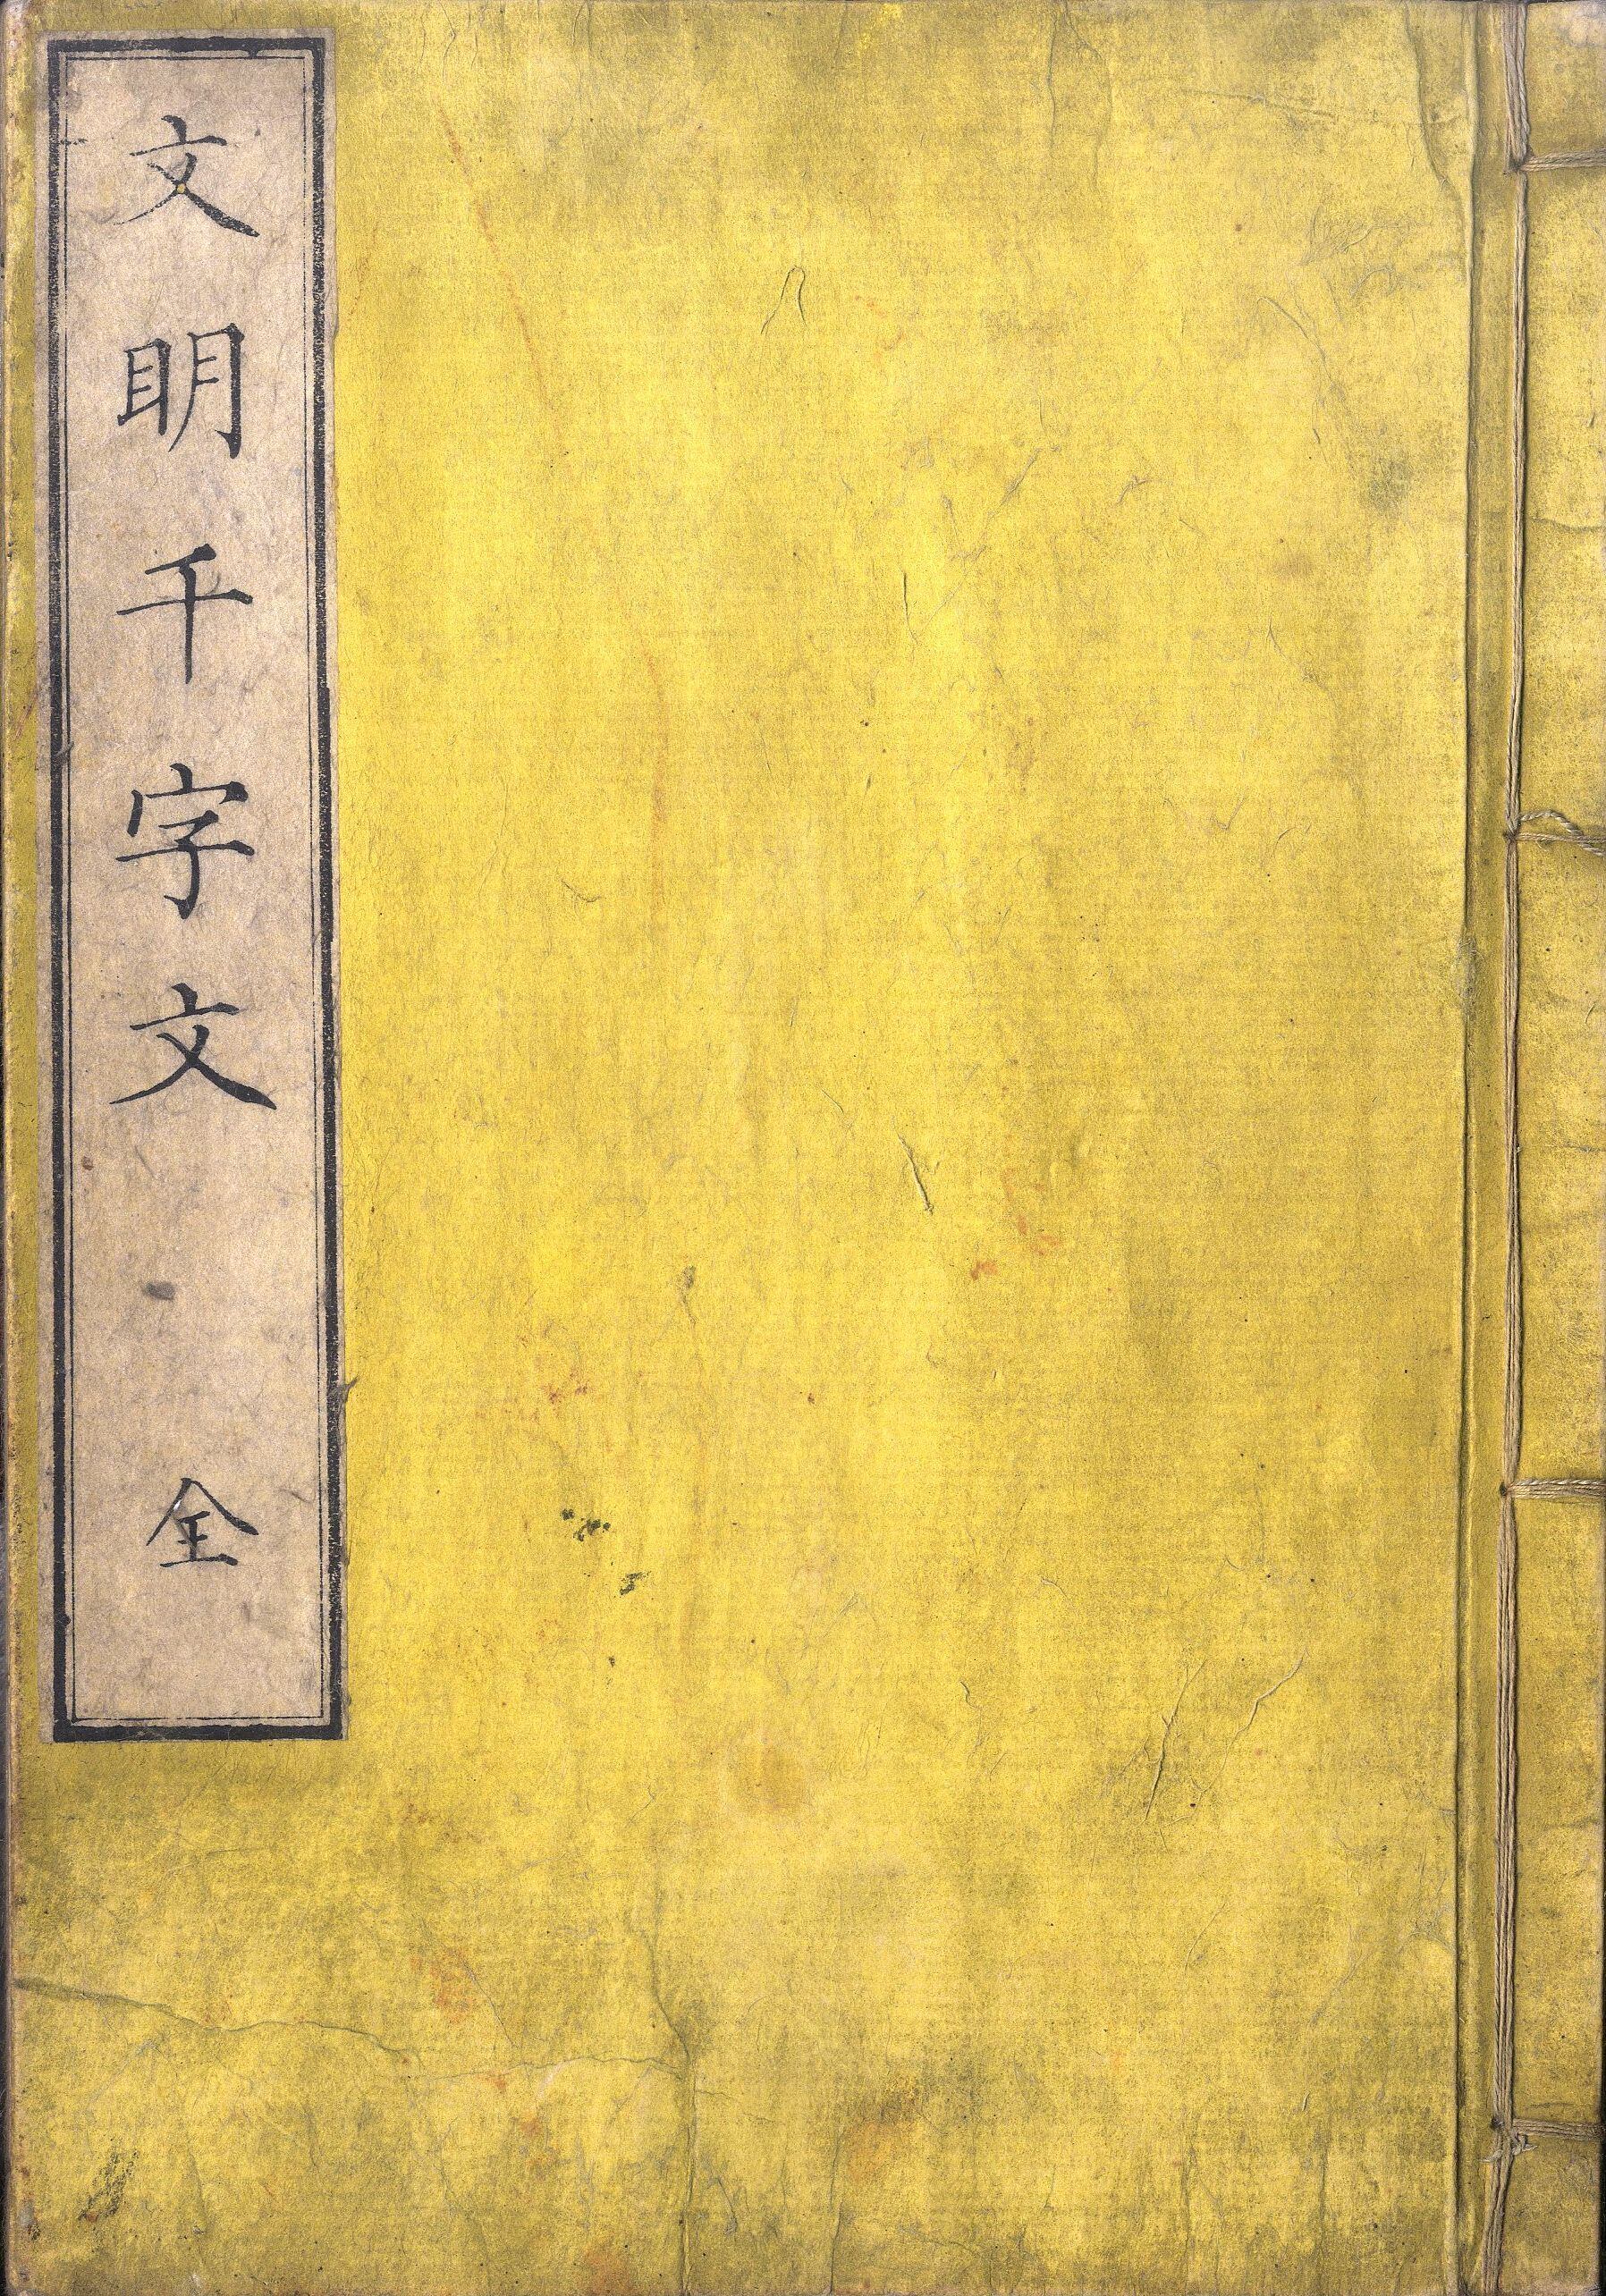 文明千字文
全